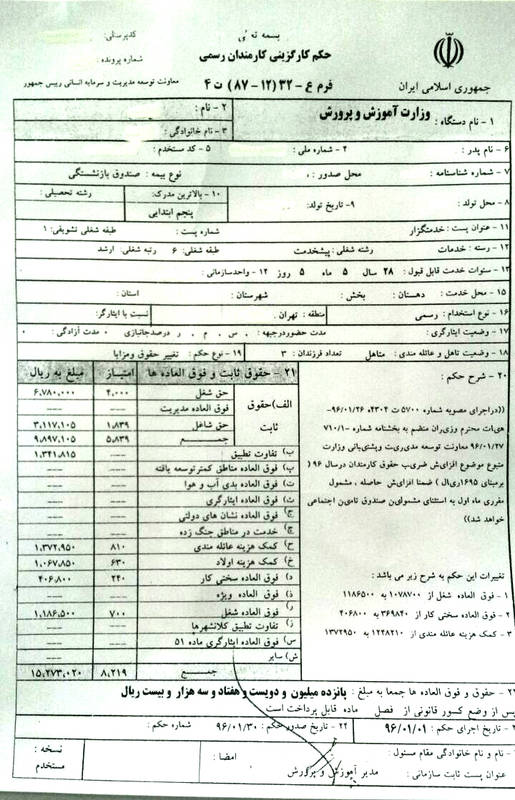 بسمه تعالی
کدپرسنلی:
حکم کارگزینی کارمندان رسمی
شماره پرونده:
فرم ع - ۳۲ (۱۲ - ۸۷) ت ۴
معاونت توسعه مدیریت و سرمایه انسانی رییس جمهور
جمهوری اسلامی ایران
۱ - نام دستگاه : وزارت آموزش و پرورش
۲ - نام :
۳ - نام خانوادگی :
۶ - نام پدر :
۴ - شماره ملی :
۵ - کد مستخدم :
۷ - شماره شناسنامه :
محل صدور :
نوع بیمه : صندوق بازنشستگی
۸ - محل تولد :
۹- تاریخ تولد:
۱۰ - بالاترین مدرک:
پنجم ابتدایی
رشته تحصیلی :
۱۱ - عنوان پست : خدمتگزار
شماره پست :
طبقه شغلی تشویقی : ۱
۱۲ - رسته : خدمات
رشته شغلی : پیشخدمت
طبقه شغلی: ۶
رتبه شغلی: ارشد
۱۳ - سنوات خدمت قابل قبول : ۲۸ سال ۵ ماه ۵ روز
۱۴ - واحدسازمانی :
۱۵ - محل خدمت : دهستان : بخش : شهرستان : استان :
۱۶ - نوع استخدام : رسمی
منطقه : تهران
نسبت با ایثارگر:
۱۷ - وضعیت ایثارگری :
مدت حضوردرجبهه : . س . م . ر درصدجانبازی ۰ مدت آزادگی : ۰
۱۸ - وضعیت تاهل و عائله مندی : متاهل تعداد فرزندان : ۳
۱۹ - نوع حکم : تغییر حقوق ومزایا
۲۰ - شرح حکم :
((دراجرای مصوبه شماره ۵۷۰۰ ت ۴۳۰۴، ۹۶/۰۱/۲۶-
هیات محترم وزیران منضم به بخشنامه شماره ۷۱۰/۱-
۹۶/۰۱/۲۷ معاونت توسعه مدیریت وپشتیبانی وزارت
متبوع موضوع افزایش ضریب حقوق کارمندان درسال ۹۶ (
برمبنای ۱۶۹۵ریال ) ضمنا افزایش حاصله ، مشمول
مقرری ماه اول به استثنای مشمولین صندوق تامین اجتماعی
خواهد شد))
تغییرات این حکم به شرح زیر می باشد :
۱ - فوق العاده شغل از ۱۰۷۸۷۰۰ به ۱۱۸۶۵۰۰
۲ - فوق العاده سختی کار از ۳۶۹۸۴۰ به ۴۰۶۸۰۰
۳ - کمک هزینه عائله مندی از ۱۲۴۸۲۱۰ به ۱۳۷۲۹۵۰
۲۱ - حقوق ثابت و فوق العاده ها امتیاز مبلغ به ریال
الف)حقوق ثابت
حق شغل ۴,۰۰۰ ۶,۷۸۰,۰۰۰
فوق العاده مدیریت --- ---
حق شاغل ۱,۸۳۹ ۳,۱۱۷,۱۰۵
جمــــع ۵,۸۳۹ ۹,۸۹۷,۱۰۵
ب) تفاوت تطبیق --- ۱,۳۴۱,۸۱۵
پ) فوق العاده مناطق کمترتوسعه یافته --- ---
ت) فوق العاده بدی آب و هوا --- ---
ث) فوق العاده ایثارگری --- ---
ج) فوق العاده نشان های دولتی --- ---
چ) خدمت در مناطق جنگ زده --- ---
ح) کمک هزینه عائله مندی ۸۱۰ ۱,۳۷۲,۹۵۰
خ) کمک هزینه اولاد ۶۳۰ ۱,۰۶۷,۸۵۰
د) فوق العاده سختی کار ۲۴۰ ۴۰۶,۸۰۰
ذ) فوق العاده ویژه --- ---
ر) فوق العاده شغل ۷۰۰ ۱,۱۸۶,۵۰۰
ز) تفاوت تطبیق کلانشهرها --- ---
س) فوق العاده ایثارگری ماده ۵۱ --- ---
ش) سایر --- ---
جمــــع ۸,۲۱۹ ۱۵,۲۷۳,۰۲۰
حقوق و فوق العاده ها جمعا به مبلغ : پانزده میلیون و دویست و هفتاد و سه هزار و بیست ریال
پس از وضع کسور قانونی از فصل ماده قابل پرداخت است
تاریخ اجرای حکم : ۹۶/۰۱/۰۱
۲۴ - تاریخ صدور حکم : ۹۶/۰۱/۳۰
شماره حکم :
نام و نام خانوادگی مقام مسئول :
امضا :
نسخه :
عنوان پست ثابت سازمانی : مدیر آموزش و پرورش
مستخدم